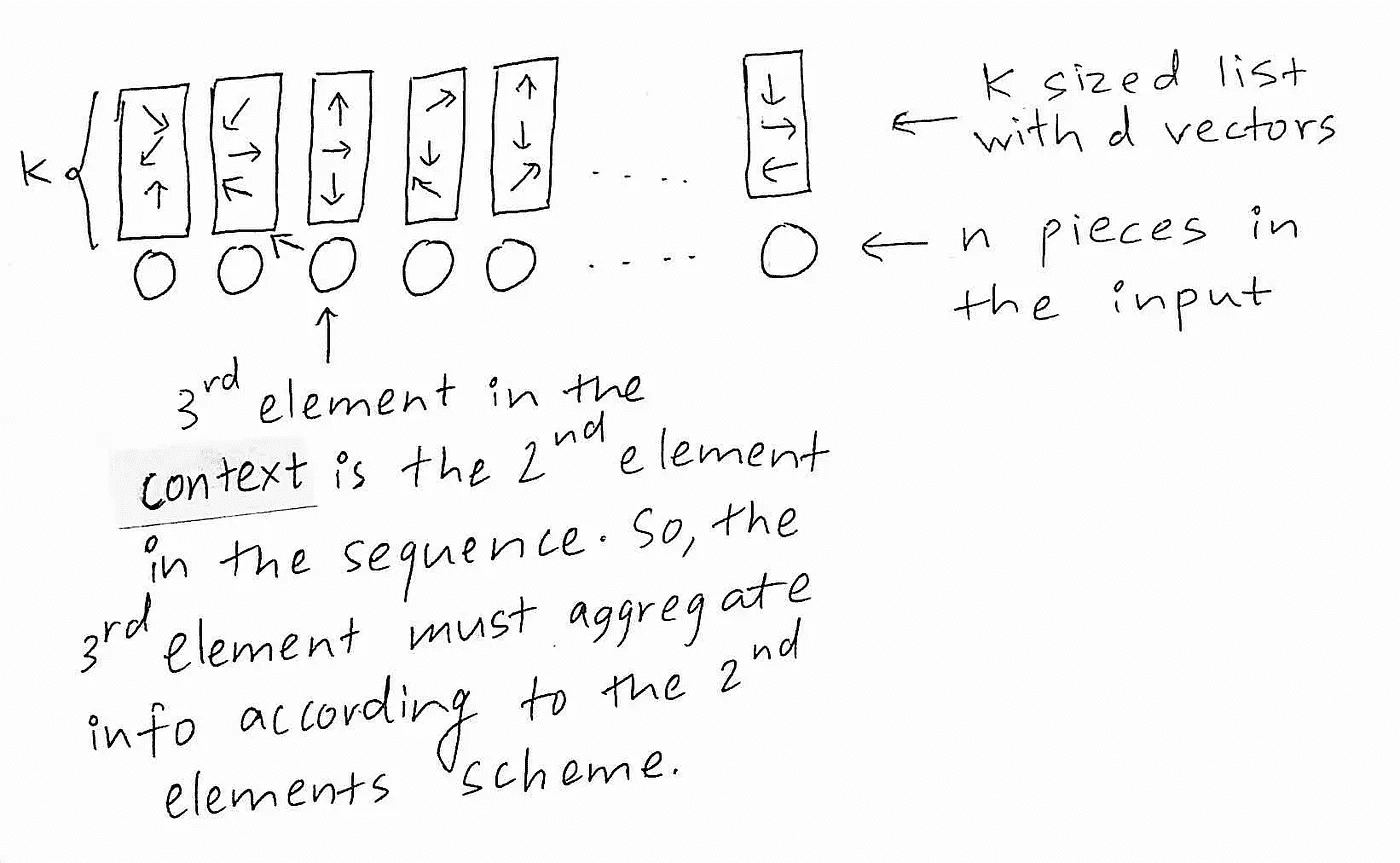 K
K sized list
with d vectors
n pieces in
the input
3rd element in the
context is the 2nd element
in the sequence. So, the
3rd element must aggregate
info according to the 2nd
elements scheme.